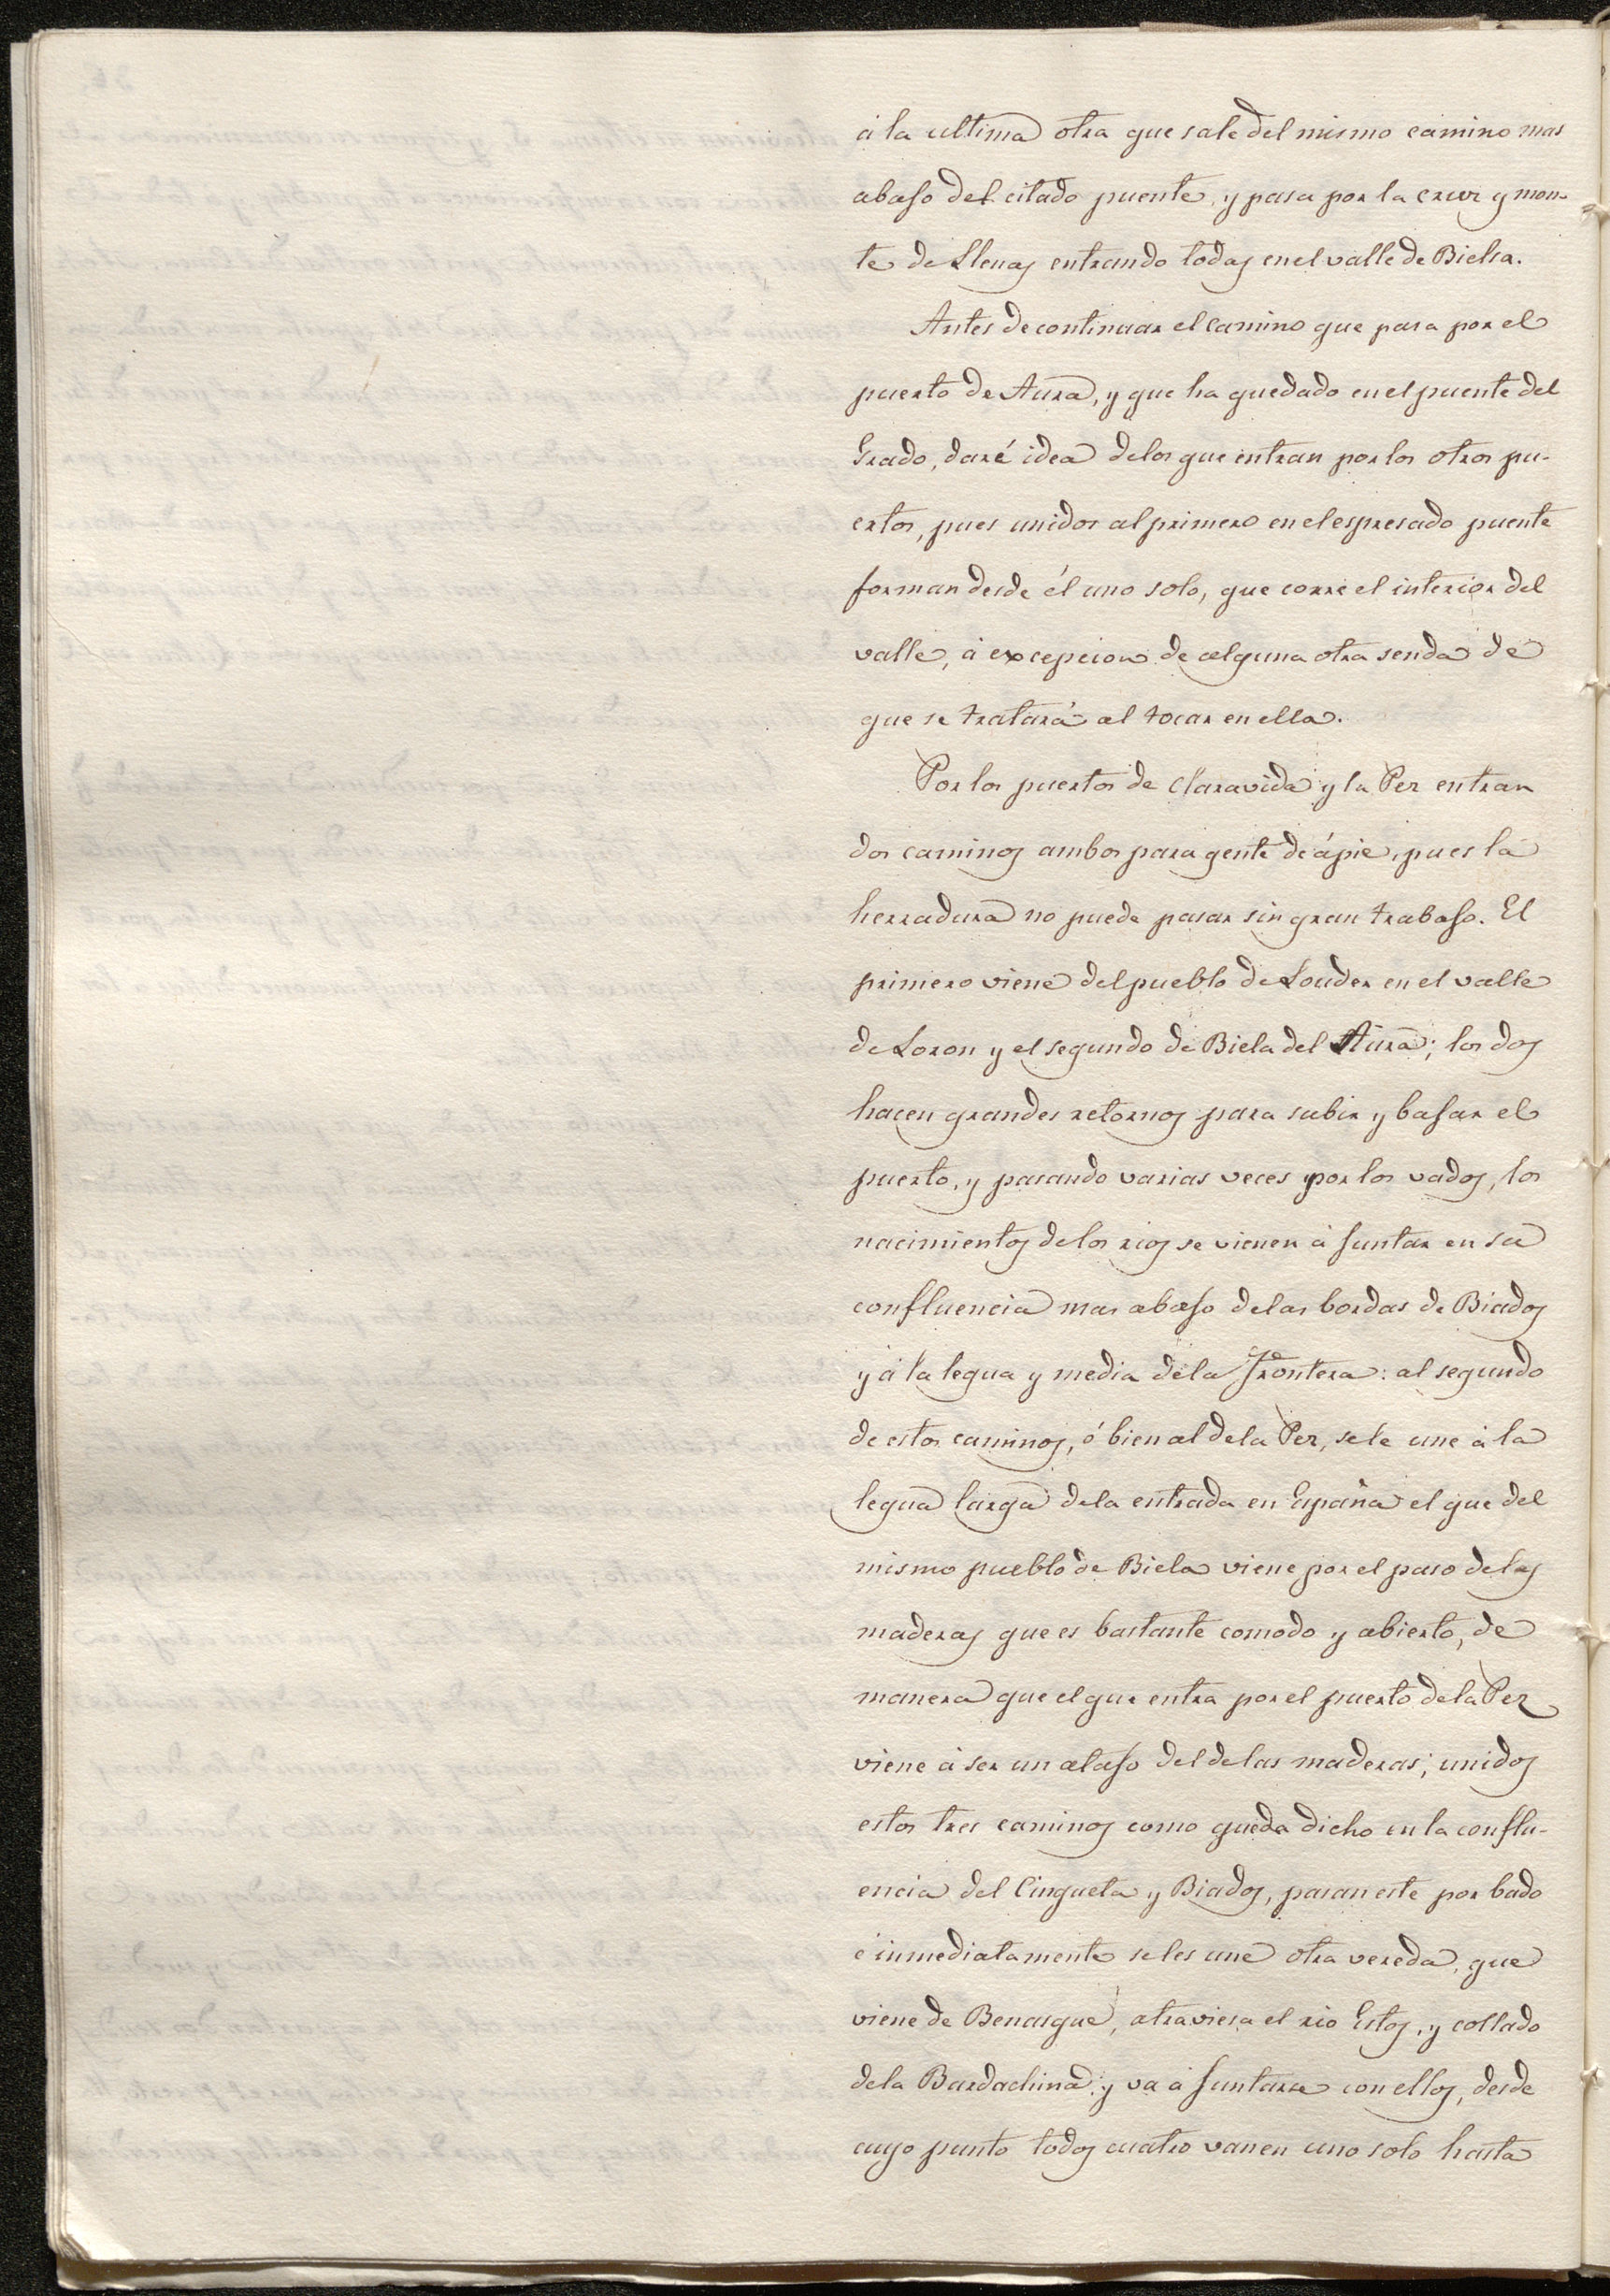 á la ultima otra que sale del mismo camino mas
abajo del citado puente, y pasa por la cruz y mon-
te de Llenas entrando todas en el valle de Bielsa.
Antes de continuar el camino que pasa por el
puerto de Aura, y que ha quedado en el puente del
Grado, daré idea de los que entran por los otros pu-
ertos, pues unidos al primero en el espresado puente
forman desde él uno solo, que corre el interior del
valle, á excepcion de alguna otra senda de
que se tratará al tocar en ella.
Por los puertos de Claravida y la Pez entran
dos caminos ambos para gente de ápie, pues la
herradura no puede pasar sin gran trabajo. El
primero viene del pueblo de Louder en el valle
de Loron y el segundo de Biela del Aura; los dos
hacen grandes retornos para subir y bajar el
puerto, y pasando varias veces por los vados, los
nacimientos de los rios se vienen á juntar en su
confluencia mas abajo de las bordas de Biados
y á la legua y media de la Frontera: al segundo
de estos caminos, ó bien al de la Pez, se le une á la
legua larga de la entrada en España el que del
mismo pueblo de Biela viene por el paso de las
maderas que es bastante comodo y abierto, de
manera que el que entra por el puerto de la Pez
viene á ser un atajo del de las maderas; unidos
estos tres caminos como queda dicho en la conflu-
encia del Cinqueta y Biados, pasan este por bado
é inmediatamente se les une otra vereda, que
viene de Benasque, atraviesa el rio Estos, y collado
de la Bardachina y va á juntarse con ellos, desde
cuyo punto todos cuatro van en uno solo hasta